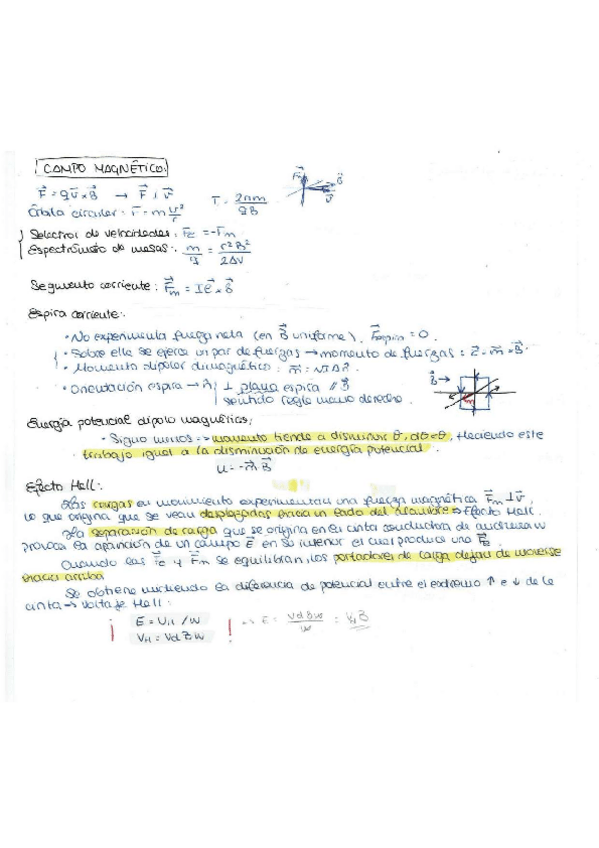 CAMPO MAGNÉTICO:
F⃗ = q v⃗ × B⃗ → F⃗ ⊥ v⃗ T = 2πm / qB
Órbita circular: F = m v²/r
Selector de velocidades: F⃗e = -F⃗m
Espectrómetro de masas: m/q = r²B²/2ΔV
Segmento corriente: F⃗m = I ℓ⃗ × B⃗
Espira corriente:
• No experimenta fuerza neta (en B⃗ uniforme). F⃗espira = 0.
• Sobre ella se ejerce un par de fuerzas → momento de fuerzas: τ⃗ = m⃗ × B⃗
• Momento dipolar magnético: m⃗ = N I A n⃗.
• Orientación espira → n⃗ { ⊥ plano espira // B⃗
sentido regla mano derecha.
B⃗ →
Energía potencial dipolo magnético:
• Signo menos → momento tiende a disminuir θ, dθ<0, Haciendo este
trabajo igual a la disminución de energía potencial.
U = -m⃗ B⃗
Efecto Hall:
Las cargas en movimiento experimentan una fuerza magnética F⃗m ⊥ v⃗,
lo que origina que se vean desplazadas hacia un lado del alambre → Efecto Hall.
La separación de carga que se origina en la cinta conductora de anchura w
provoca la aparición de un campo E⃗ en su interior el cual produce una F⃗E
Cuando las F⃗e y F⃗m se equilibran, los portadores de carga dejan de moverse
hacia arriba
Se obtiene midiendo la diferencia de potencial entre el extremo ↑ e ↓ de la
cinta → Voltaje Hall:
E = VH / w → E = Vd B w / w = Vd B
VH = Vd B w